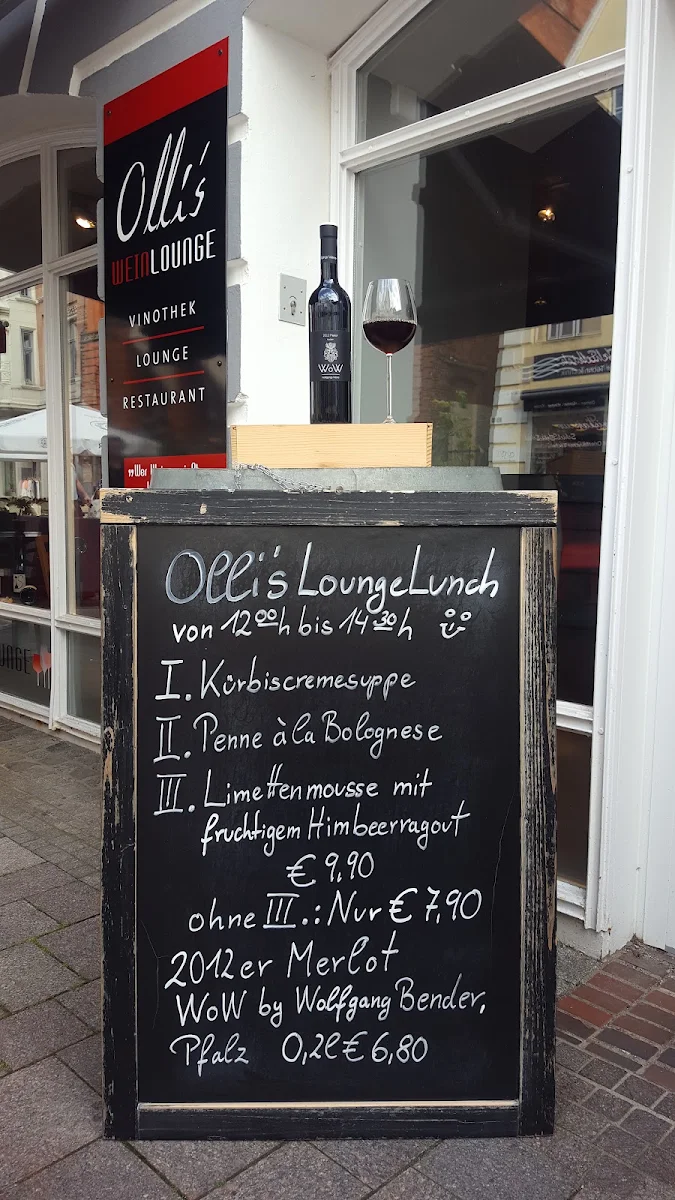 Olli's
WEINLOUNGE
VINOTHEK
LOUNGE
RESTAURANT
WoW
Olli's LoungeLunch
von 12⁰⁰h bis 14³⁰h
I. Kürbiscremesuppe
II. Penne à la Bolognese
III. Limettenmousse mit
fruchtigem Himbeerragout
€ 9,90
ohne III.: Nur € 7,90
2012er Merlot
WoW by Wolfgang Bender,
Pfalz 0,2l € 6,80